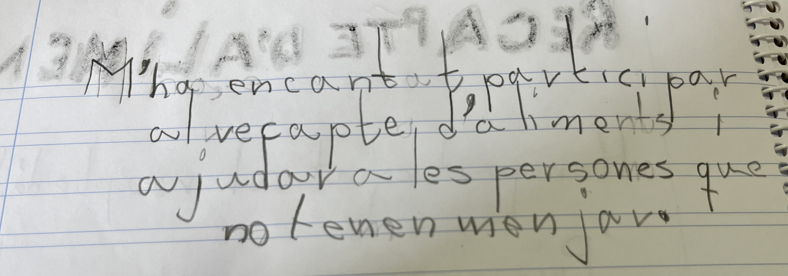 RECAPTE D'ALIMEN
M'ha encantat participar
al recapte d'aliments i
ajudar a les persones que
no tenen menjar.